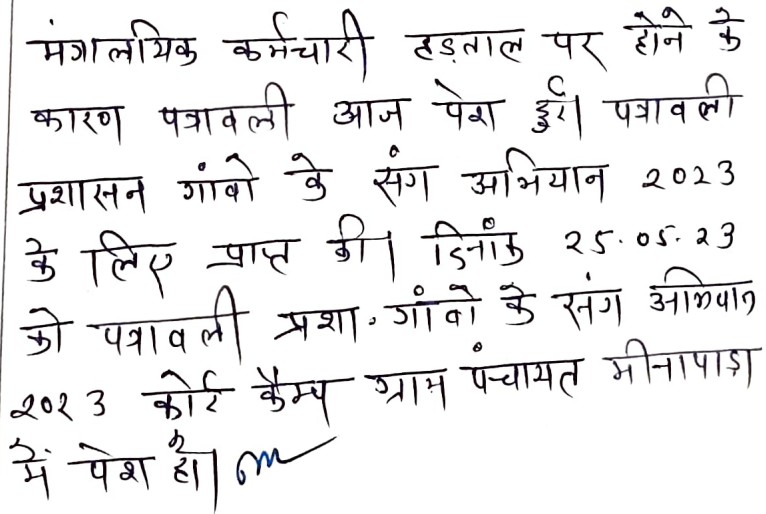 मंत्रालयिक कर्मचारी हड़ताल पर होने के
कारण पत्रावली आज पेश हुई। पत्रावली
प्रशासन गांवो के संग अभियान 2023
के लिए प्राप्त की। दिनांक 25.05.23
को पत्रावली प्रशा. गांवो के संग अभियान
2023 कोर्ट कैम्प ग्राम पंचायत मीनापाड़ा
में पेश हो।